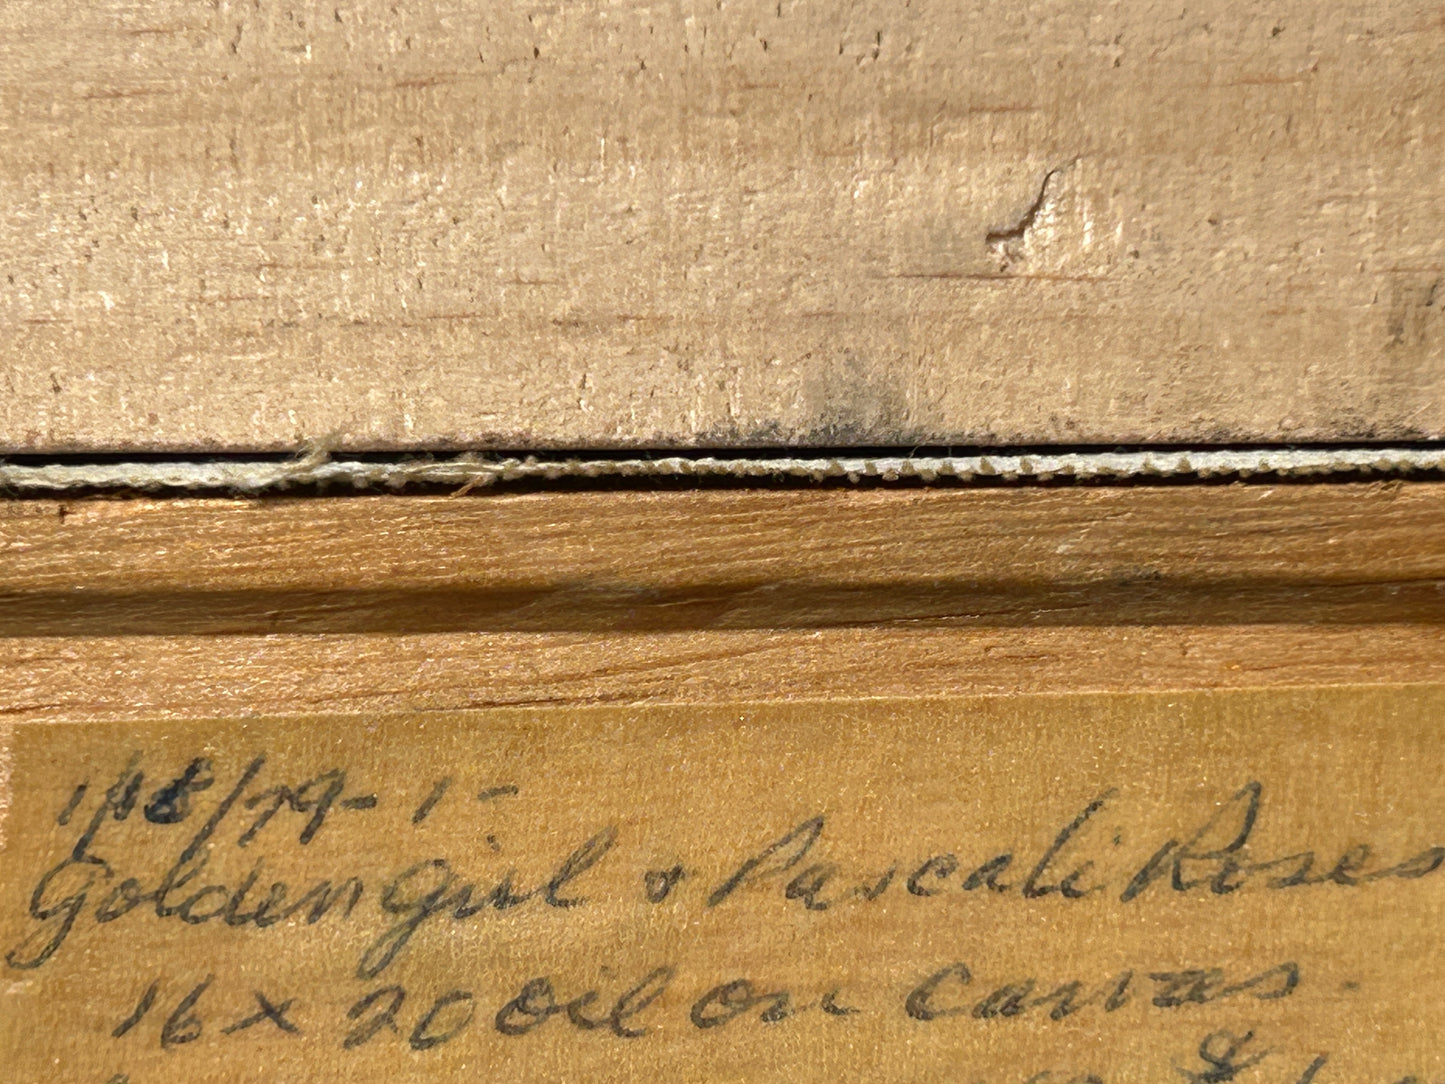 1/18/79-1-
Golden Girl & Pascali Roses
16 x 20 oil on canvas.